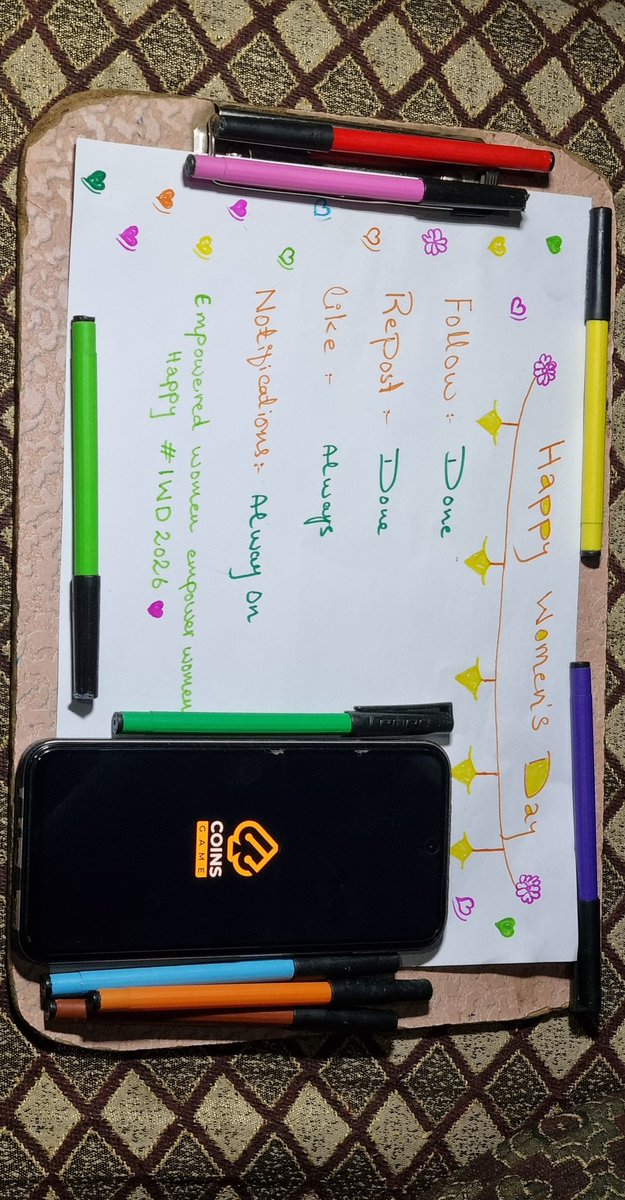 Happy Women's Day
Follow :- Done
Repost :- Done
Like :- Always
Notifications :- Alway on
Empowered women empower women
Happy #IWD2026
COINS
GAME